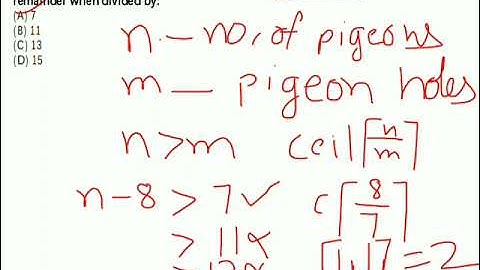 remainder when divided by:
(A) 7
(B) 11
(C) 13
(D) 15
n - no. of pigeons
m - pigeon holes
n > m ceil ⌈n/m⌉
n - 8 > 7 ✓ c ⌈8/7⌉
> 11 x ⌈1.1⌉ = 2